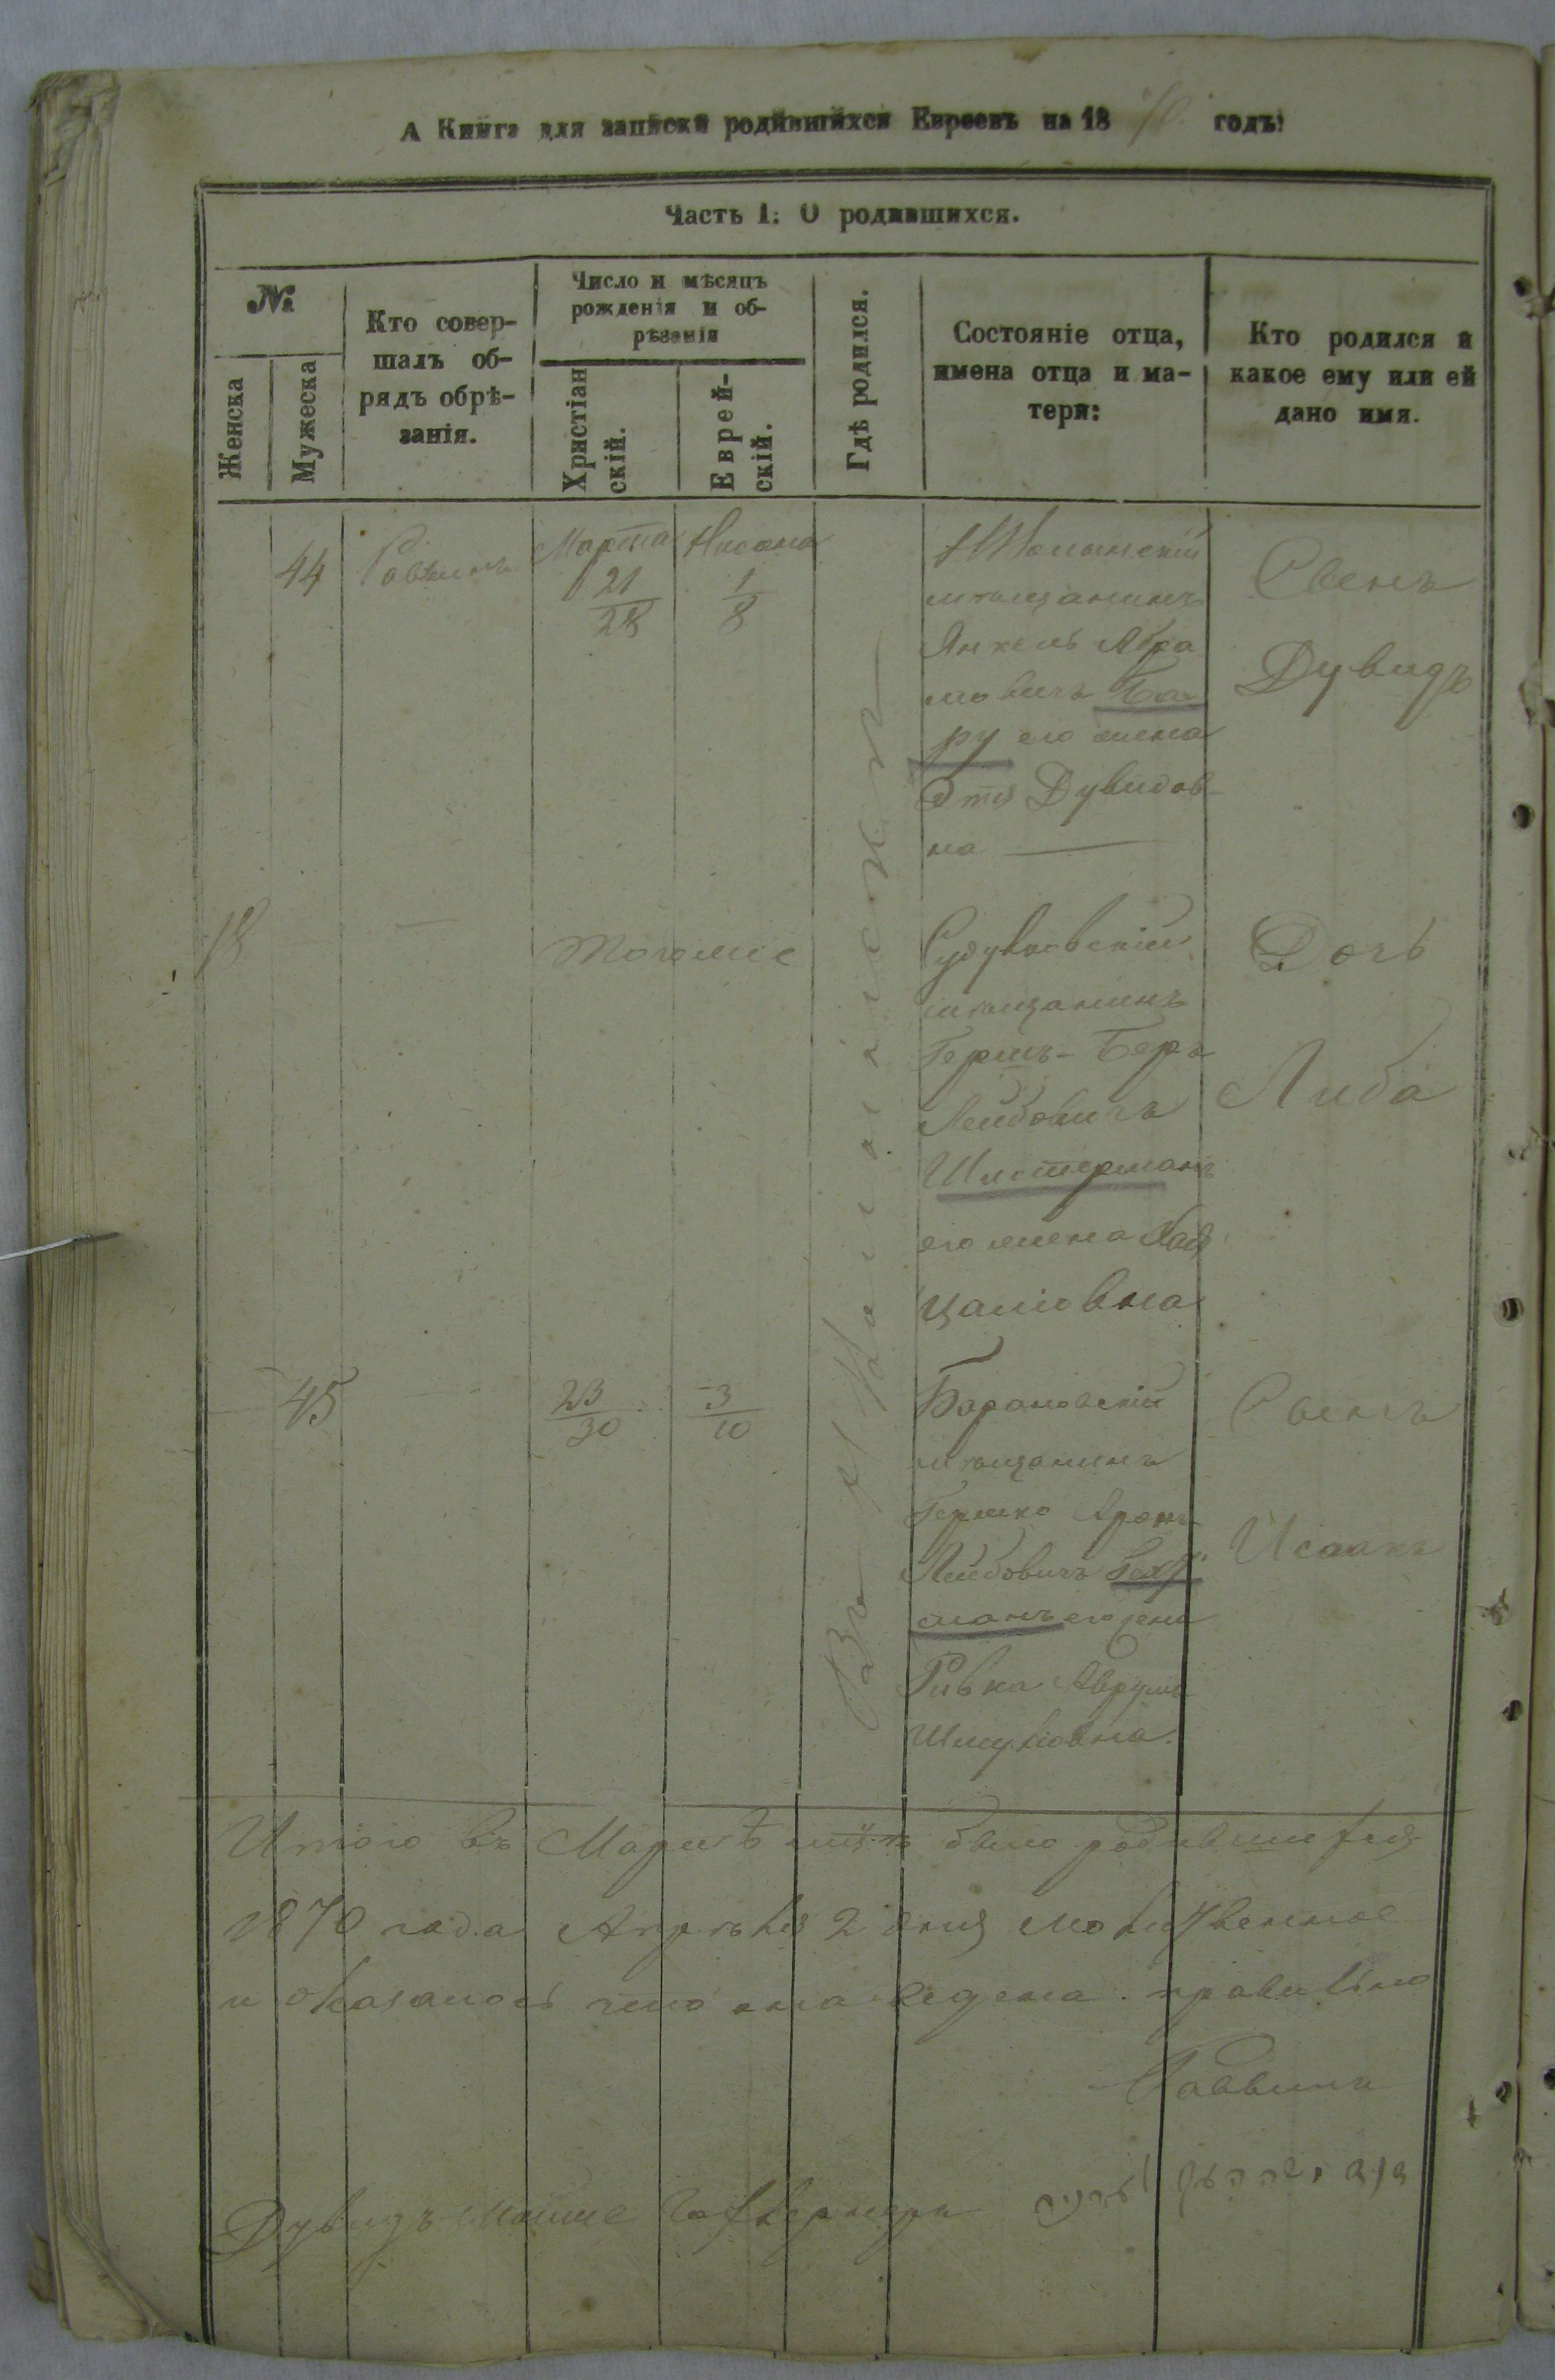 А Книга для записки родившихся Евреевъ на 1870 годъ:
Часть 1: О родившихся.
№
Женска
Мужеска
Кто совер-
шалъ об-
рядъ обрѣ-
занія.
Число и мѣсяцъ
рожденія и об-
рѣзанія
Христіан
скій.
Еврей-
скій.
Гдѣ родился.
Состояніе отца,
имена отца и ма-
тери:
Кто родился и
какое ему или ей
дано имя.
44
Раввинъ
Марта
21
28
Нисана
1
8
Въ
мѣщанинъ
Янкель Абра
мовичъ Ба
ру его жена
Этя Дувидов
на
Сынъ
Дувидъ
18
тогоже
Судулковскій
мѣщанинъ
Гершъ-Беръ
Лейбовичъ
Шистерманъ
его жена Хая
Дочь
Либа
45
23
30
3
10
Барановскій
мѣщанинъ
Гершко Аронъ
Лейбовичъ
его жена
Ривка Аврумъ
Шмулiовна.
Сынъ
Исаакъ
Итого въ Мартѣ было родившихся
1870 года Апрѣля 2 дня
и оказалось что она ведена правильно
Раввинъ
Дувидъ Мойше